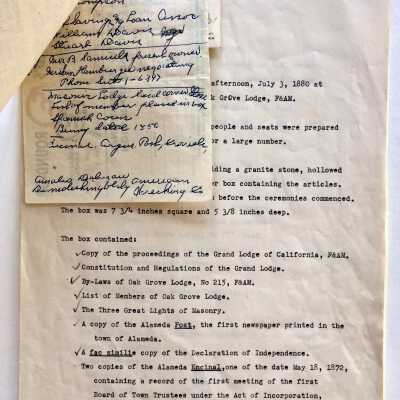 Savings & Loan Assoc
William Dawes
Stuart Dawes
present owner
negotiating
Masonic Lodge laid corner stone
List of member placed in box
Spanish Coin
Penny dated 1850
demolishing bldg American
Wrecking Co
afternoon, July 3, 1880 at
k Grove Lodge, F&AM.
people and seats were prepared
or a large number.
ding a granite stone, hollowed
er box containing the articles.
before the ceremonies commenced.
The box was 7 3/4 inches square and 5 3/8 inches deep.
The box contained:
Copy of the proceedings of the Grand Lodge of California, F&AM.
Constitution and Regulations of the Grand Lodge.
By-Laws of Oak Grove Lodge, No 215, F&AM.
List of Members of Oak Grove Lodge.
The Three Great Lights of Masonry.
A copy of the Alameda Post, the first newspaper printed in the
town of Alameda.
A fac similie copy of the Declaration of Independence.
Two copies of the Alameda Encinal, one of the date May 18, 1872,
containing a record of the first meeting of the first
Board of Town Trustees under the Act of Incorporation,